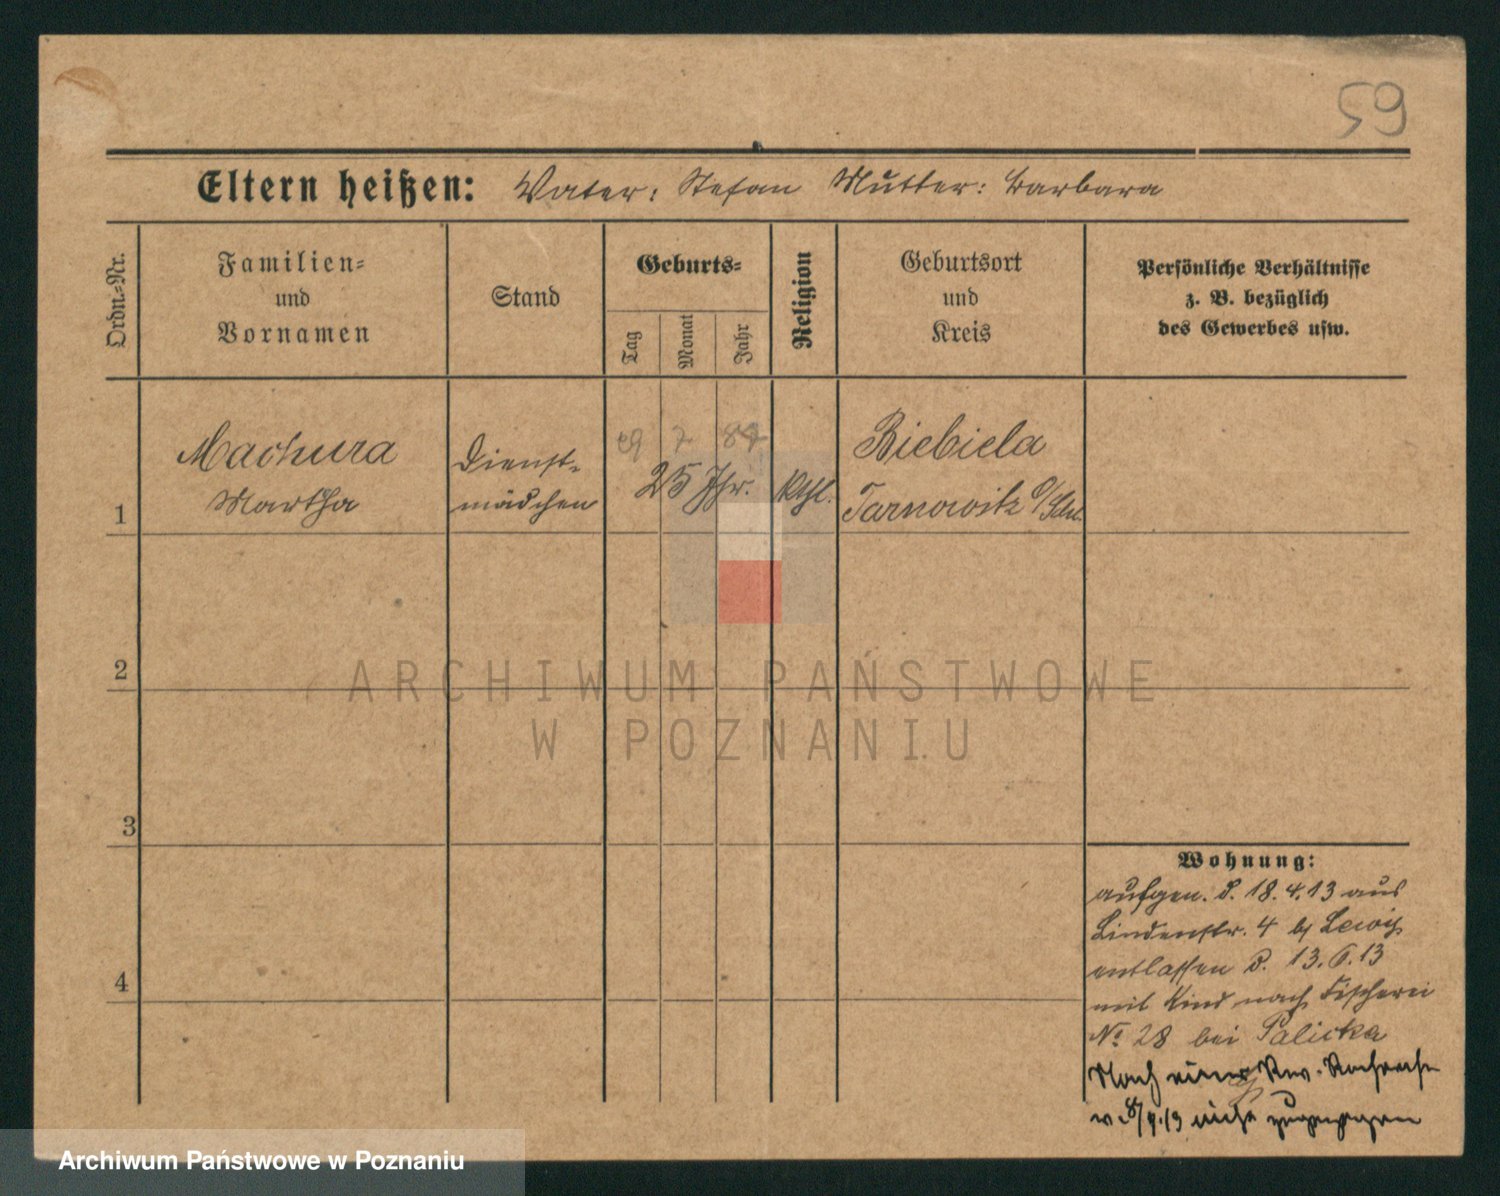 59
Eltern heißen: Vater: Stefan Mutter: Barbara
Ordn.=Nr.
Familien=
und
Vornamen
Stand
Geburts=
Tag
Monat
Jahr
Religion
Geburtsort
und
Kreis
Persönliche Verhältnisse
z. B. bezüglich
des Gewerbes usw.
1
Machura
Martha
Dienst-
mädchen
29 7 87
25 Jhr.
Kthl.
Biebiela
Tarnowitz O/Schl.
2
3
4
Wohnung:
aufgen. d. 18.4.13 aus
Lindenstr. 4 bei
entlassen d. 13.6.13
mit Kind nach Fischerei
No 28 bei Palicka
Nach einer Rev.
v. 8/9.13 nicht zugezogen
ARCHIWUM PAŃSTWOWE
W POZNANIU
Archiwum Państwowe w Poznaniu